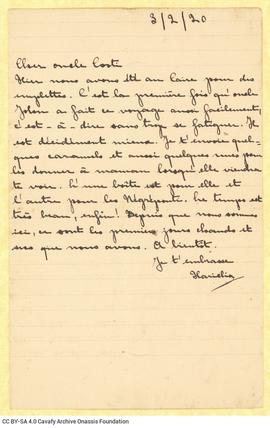 3/2/20
Cher oncle Costi
Hier nous avons été au Caire pour des
emplettes. C'est la première fois qu'oncle
John a fait ce voyage aussi facilement,
c'est-à-dire sans trop se fatiguer. Il
est décidément mieux. Je t'envoie quel-
ques caramels et aussi quelques unes pour
les donner à maman lorsqu'elle viendra
te voir. L'une boîte est pour elle et
l'autre pour les. Le temps est
très beau, enfin! Depuis que nous sommes
ici, ce sont les premiers jours chauds et
secs que nous avons. A bientôt.
Je t'embrasse
Hariclia
CC BY-SA 4.0 Cavafy Archive Onassis Foundation